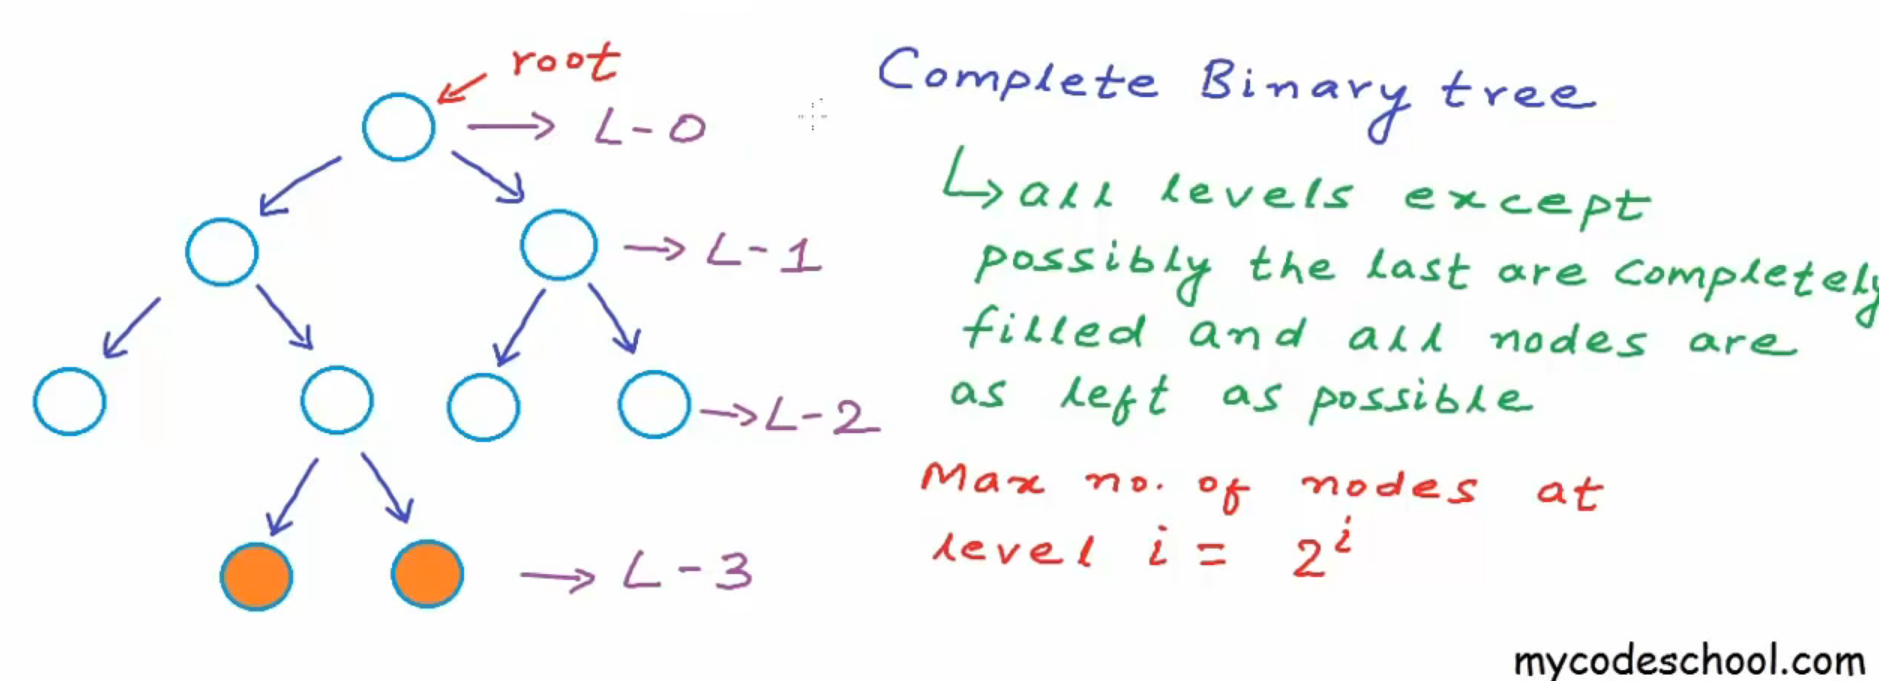 root
L-0
L-1
L-2
L-3
Complete Binary tree
↳ all levels except
possibly the last are completely
filled and all nodes are
as left as possible
Max no. of nodes at
level i = 2^i
mycodeschool.com